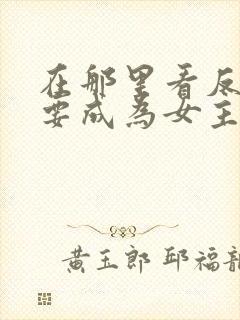 在那里看反
要成为女主
黄玉郎 邱福龍